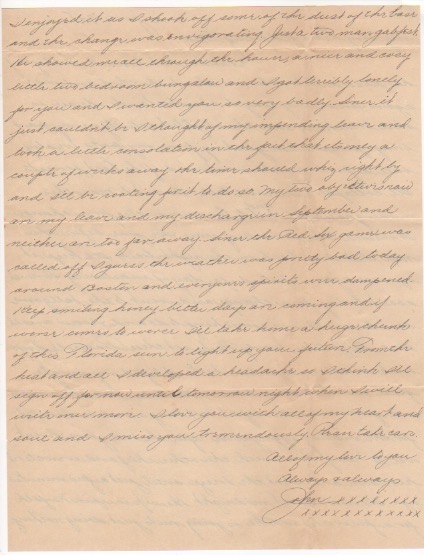 I enjoyed it as I shook off some of the dust of the Base
and the change was envigorating. Just a two man galypst.
He showed me all through the house, a nice and cozy
little two bedroom bungalow and I got terribly lonely
for you and I wanted you so very badly. Since it
just couldn't be I thought of my impending leave and
took a little consolation in the fact that its only a
couple of weeks away the time should whiz right by
and I'll be rooting for it to do so. My two objectives now
are my leave and my discharge in September and
neither are too far away. Since the Red Sox game was
called off I guess the weather was pretty bad today
around Boston and everyones spirits were dampened.
Keep smiling honey better days are coming and if
worse comes to worse I'll take home a huge chunk
of this Florida sun to light up your future. From the
heat and all I developed a headache so I think I'll
sign off for now until tomorrow night when I will
write once more. I love you with all of my heart and
soul and I miss you tremendously. Please take care.
All of my love to you
Always & always
John xxxxxxxx
xxxxxxxxxxxx